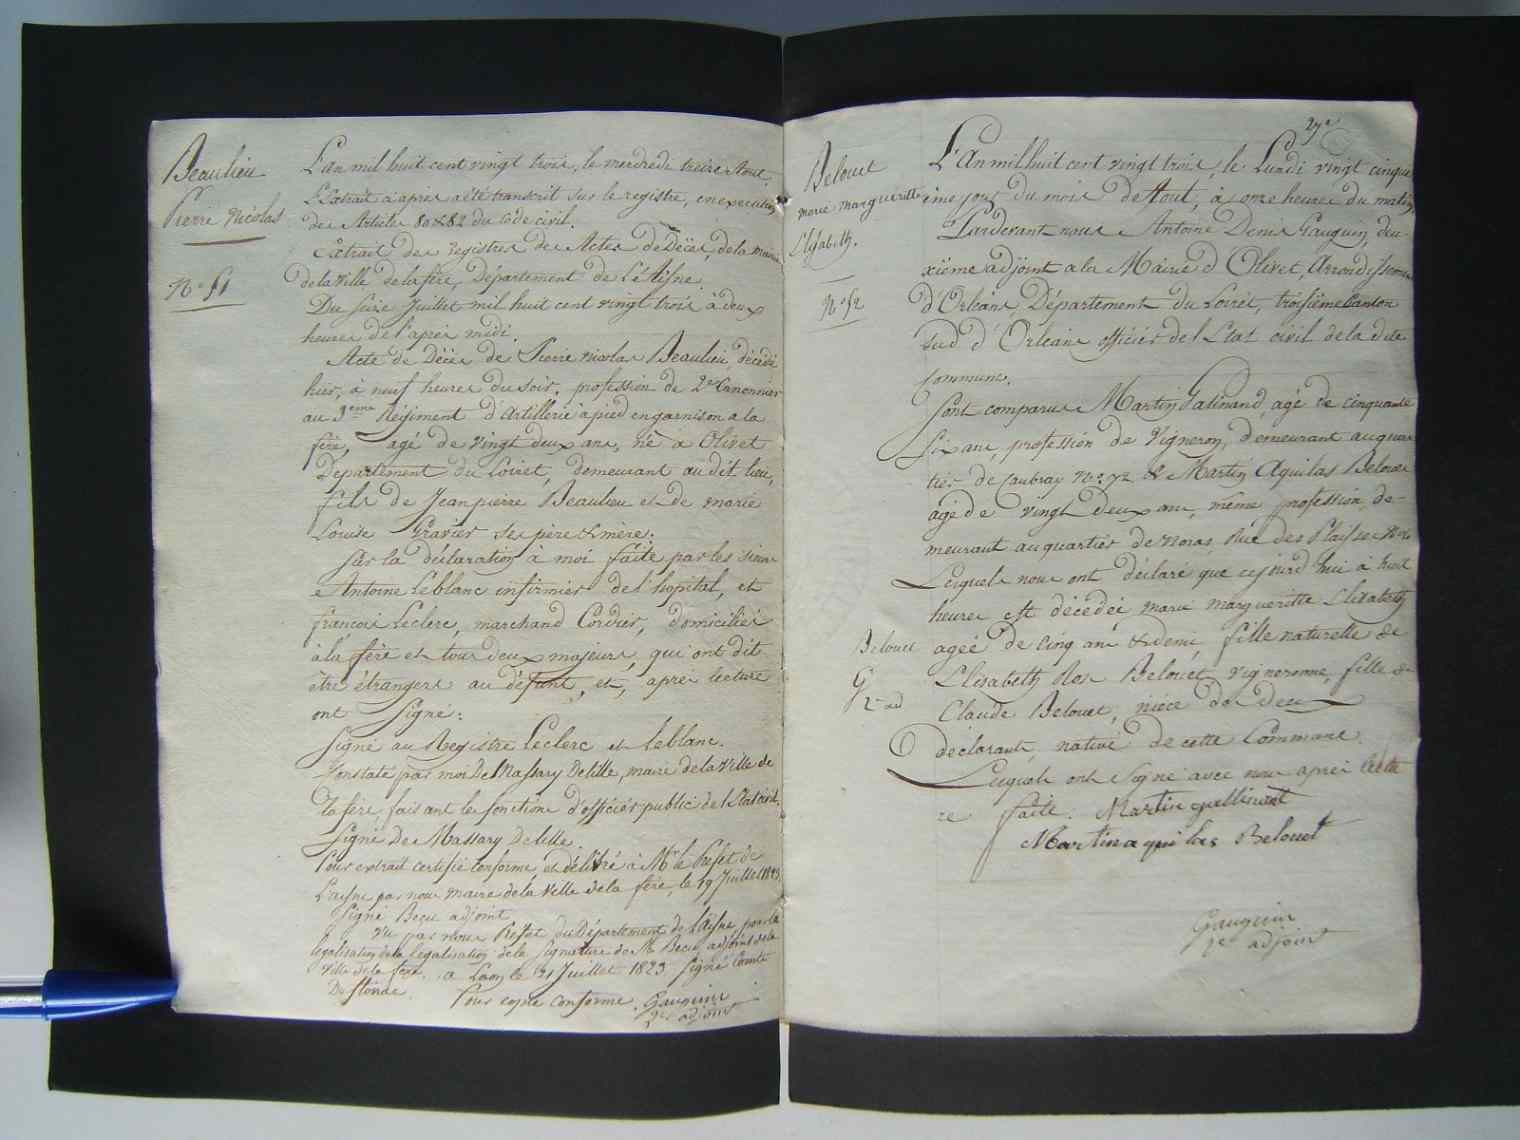 Beaulieu
Pierre Nicolas
N.° 51
L'An mil huit cent vingt trois, le mercredi treize Aout,
L'Extrait ci après a été transcrit sur le registre, en execution
des Articles 80 & 82 du Code civil.
Extrait des registres des Actes de Décès, de la mairie
de la Ville de la fère, Département de L'Aisne.
Du Seize Juillet mil huit cent vingt trois à deux
heures de l'après midi.
Acte de Décès de Pierre nicolas Beaulieu décédé
hier, à neuf heures du soir, profession de 2e Canonnier
au 3eme Régiment d'Artillerie à pied en garnison a la
fère, agé de vingt deux ans, né a Olivet
Département du Loiret, demeurant au dit lieu,
fils de Jean pierre Beaulieu et de marie
Louise Gravier ses père & mère;
Sur la déclaration à moi faite par les sieurs
Antoine Leblanc infirmier de l'hopital, et
françois Leclerc, marchand Cordier, domiciliés
à la fère et tous deux majeurs, qui ont dit
être étrangers au défunt, et, après lecture
ont Signé:
Signé au Registre Leclerc et Leblanc.
Constaté par moi De Massary Delille, maire de la Ville de
la fère, faisant les fonctions d'officier public de l'Etat civil.
Signé De Massary Delille.
Pour extrait certifié conforme, et délivré à Mr le Préfet de
L'aisne par nous maire de la Ville de la fère, le 19 Juillet 1823
Signé Becu adjoint
Vu par nous Préfet du Département de l'Aisne, pour la
legalisation de la legalisation de la Signature de Mr Becu, adjoint de la
Ville de la fère. a Laon le 31 Juillet 1823 Signé Comte
De floirac. Pour copie conforme. Gauguin
2e adjoint
27e
Belouet
marie margueritte
Elisabeth.
N.° 52
L'An mil huit cent vingt trois, le Lundi vingt cinqui
ème jour du mois d'Aout, à onze heures du matin,
Pardevant nous Antoine Denis Gauguin, deu-
xième adjoint a la Mairie d'Olivet, Arrondissement
d'Orléans, Département du Loiret, troisième Canton
Sud d'Orléans officier de l'Etat civil de la dite
Commune.
Sont comparus Martin Galinand, agé de cinquante
Six ans, profession de Vigneron, demeurant au quar
tier de Caubray N.° 72 & Martin Aquilas Belouet
agé de vingt deux ans, même profession, de-
meurant au quartier de noras, Rue des Plaisses
Lesquels nous ont déclaré que cejourd'hui à huit
heures est décédée marie marguerite Elisabeth
Belouet agée de cinq ans & demi, fille naturelle de
G
2e ad
Elisabeth Rose Belouet vigneronne, fille de
Claude Belouet, niéce des deux
déclarants, native de cette Commune.
Lesquels ont Signé avec nous après lectu
re faite. Martin gallinant
Martin aquilas Belouet
Gauguin
2e adjoint